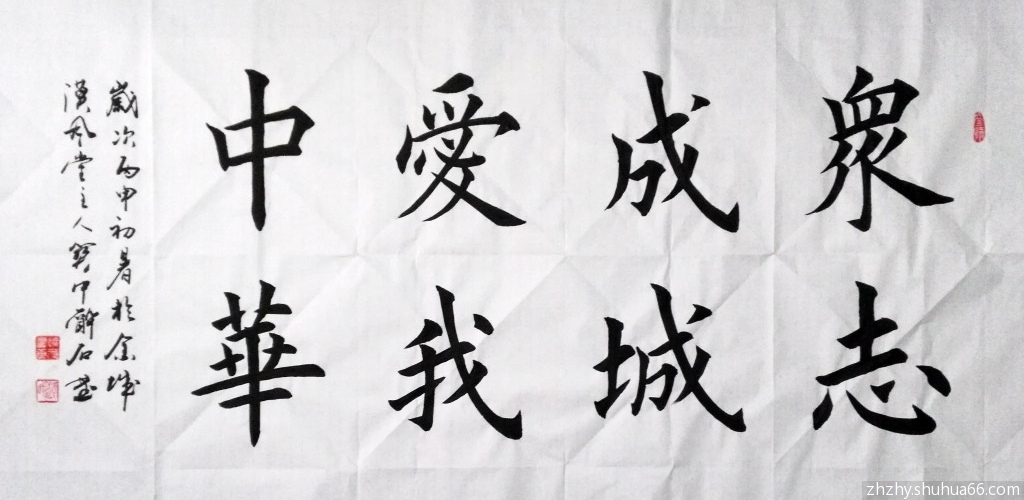 眾志
成城
愛我
中華
歲次丙申初暑於金城
漢風堂主人寶中辭石書
zhzhy.shuhua66.com